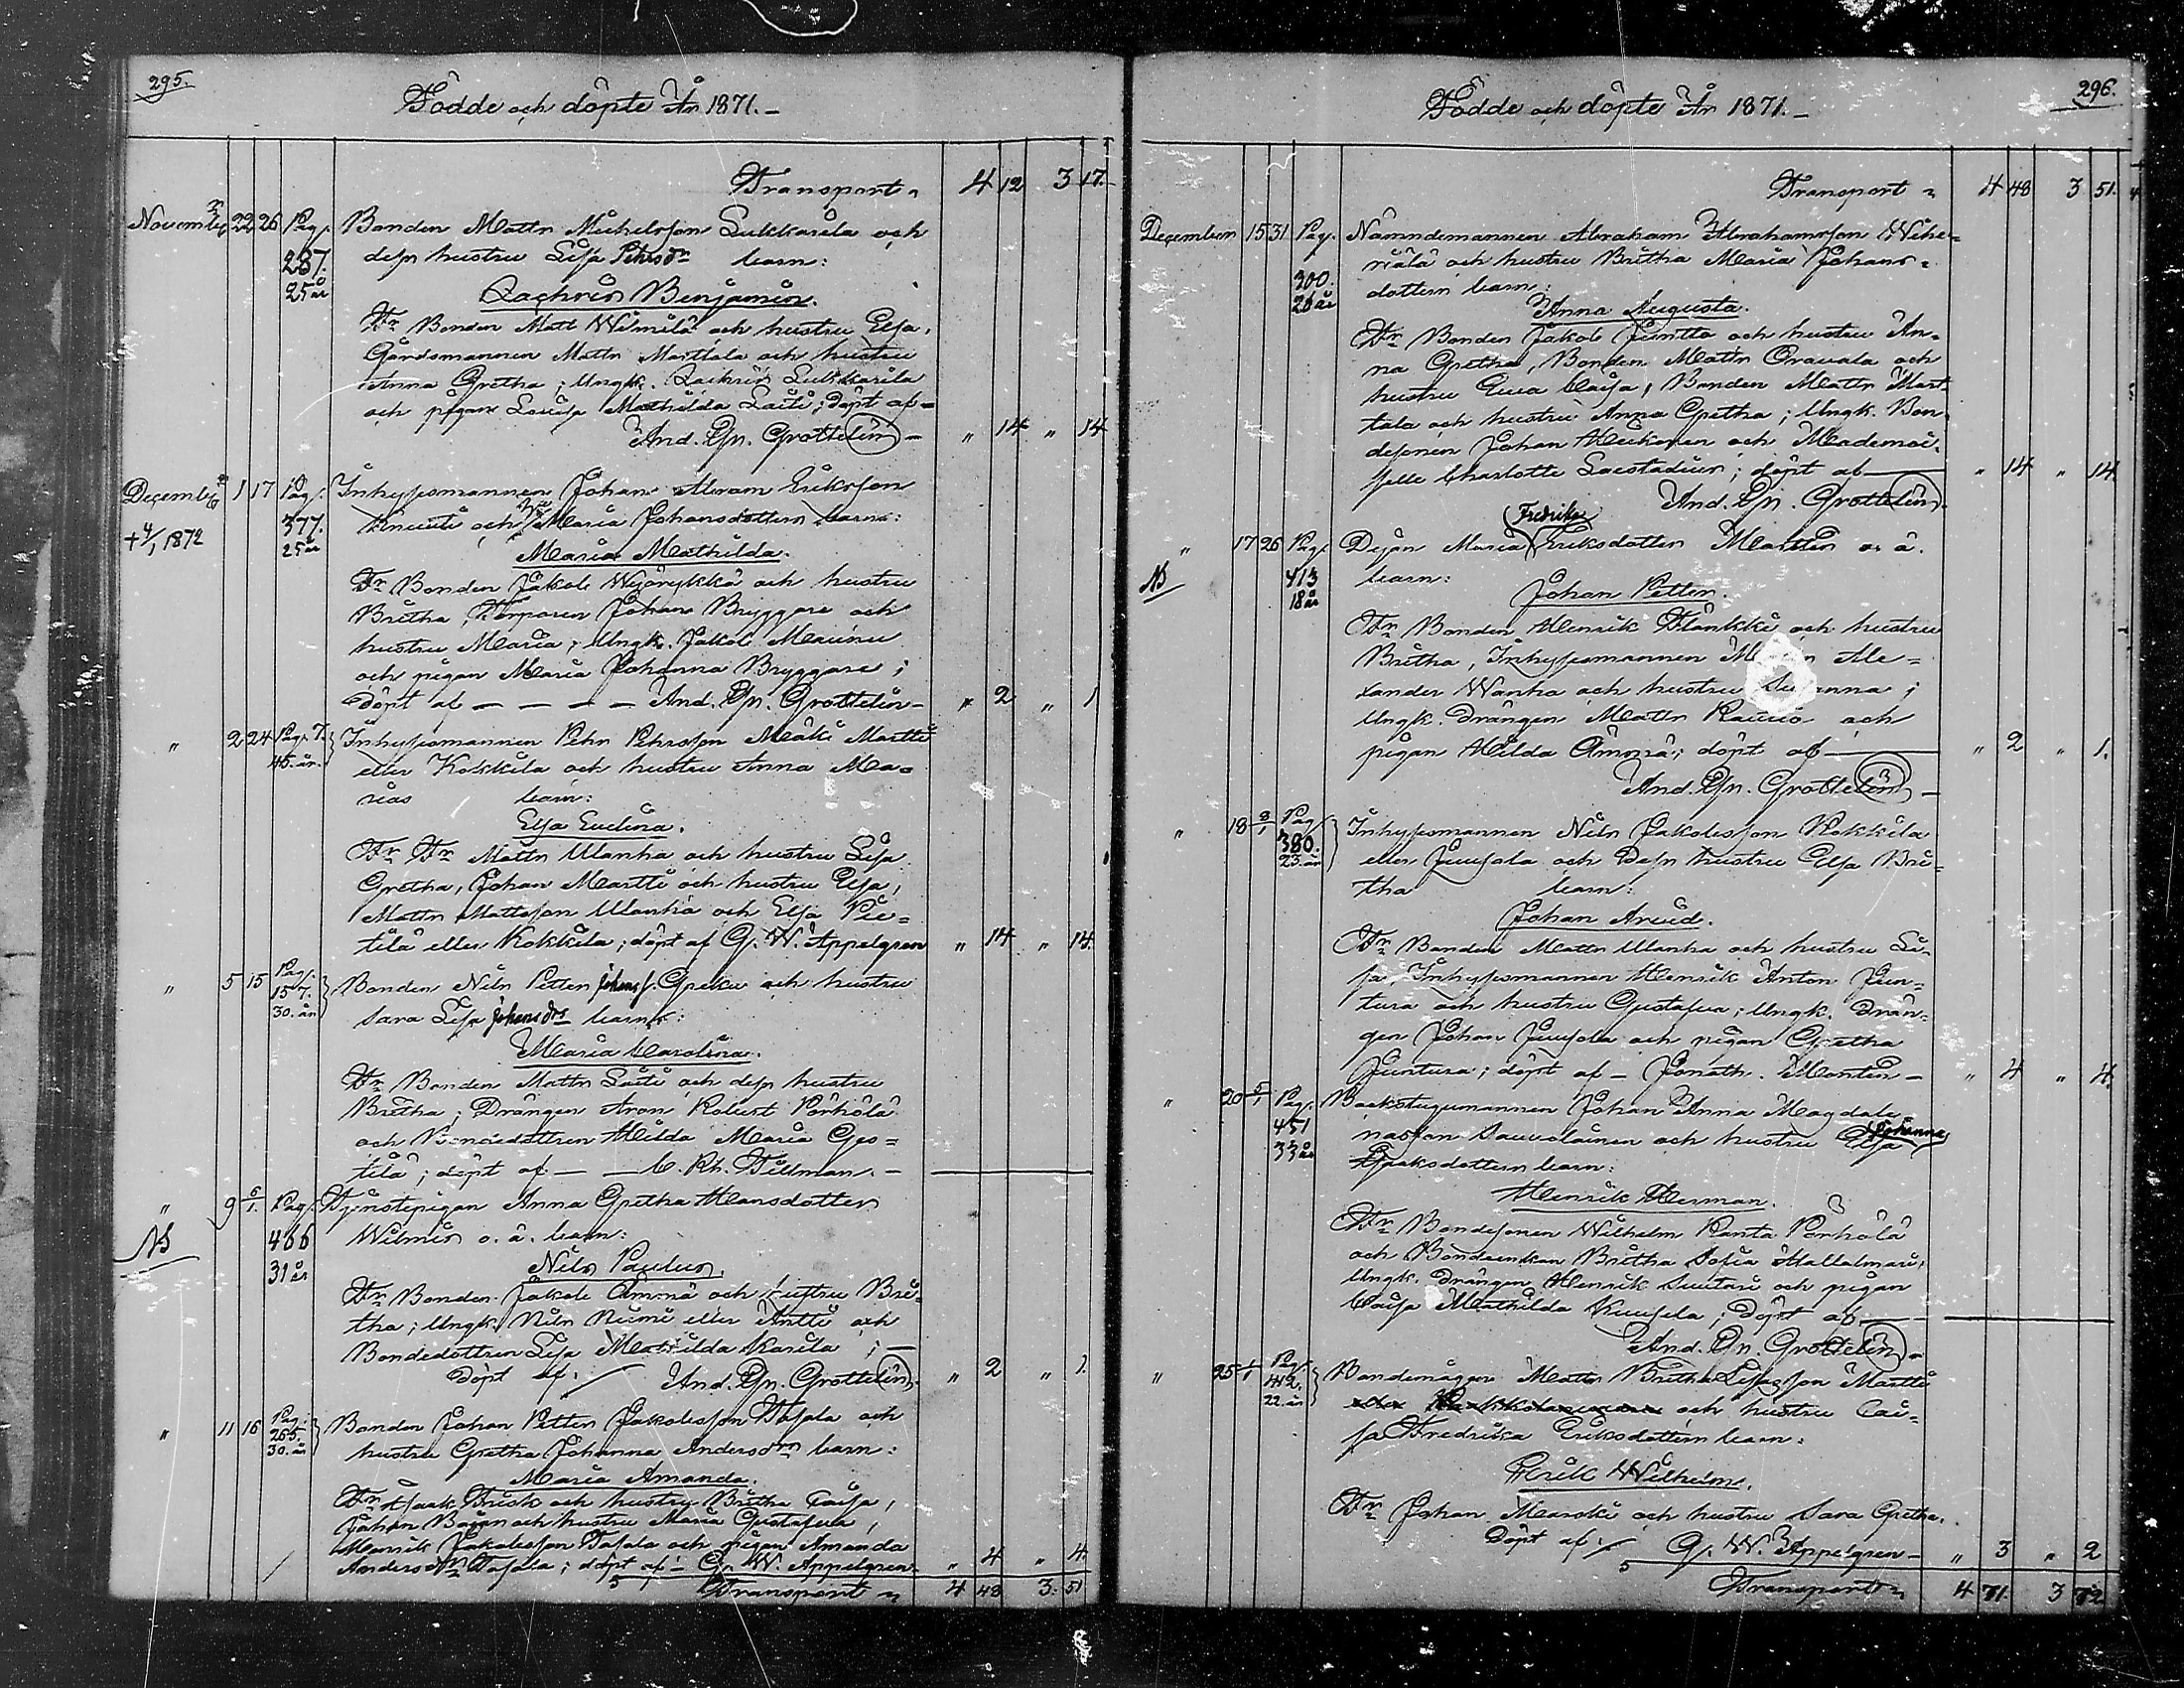 295.
Födde och döpte År 1871.
Transport 4 12 3 17.
Novembr 22 26 Pag. Bonden Matts Michelsson Lukkarila och
287. dess hustru Lisa Pehrsdr barn:
25 år Zachris Benjamin.
Fr Bonden Matt Wilmilä och hustru Elsa,
Gårdsmannen Matts Marttala och hustru
Anna Gretha; Ungk. Zachris Lukkarila
och pigan Lovisa Mathilda Laiti; döpt af
And. Gn. Grottelin " 14 " 14
December 1 17 Pag. Inhysesmannen Johan Abram Eriksson
+ 4/1 1872 377. och Maria Johansdotters barn:
25 år Maria Mathilda.
Fr Bonden Jakob och hustru
Britha, Johan Bryggare och
hustru Maria; Ungk. Jakob
och pigan Maria Johanna Bryggare;
döpt af — — — — And. Gn. Grottelin " 2 " 1
" 2 24 Pag. 7. Inhysesmannen Pehr Pehrsson Mäki Martti
45. år. eller Kokkila och hustru Anna Ma-
rias barn:
Elsa Evelina.
Fr Fr Matts Ulanha och hustru Lisa
Gretha, Johan Martti och hustru Elsa,
Matts Mattsson Ulanha och Elsa Pie-
tilä eller Kokkila; döpt af G. W. Appelgren " 14 " 14.
" 5 15 Pag. 157. 30. år Bonden Nils Petter Johans. Greku och hustru
Sara Lisa Johansdr barn:
Maria Carolina.
Fr Bonden Matts Laiti och dess hustru
Britha; Drängen Aron Robert Pörhölä
och Bondedottren Hilda Maria
; döpt af — — C. Rh. Tillman. —
" 9 5/1. Pag. Tjenstepigan Anna Gretha Hansdotter
NB 466 Wilmis o. ä. barn:
31 år Nils Paulus.
Fr Bonden Jakob Ämmä och hustru Bri-
tha; Ungk. Nils Niemi eller Antti och
Bondedottren Lisa Mathilda Karila; —
Döpt af. And. Gn. Grottelin. " 2 " 1.
" 11 16 Pag. 265. 30. år Bonden Johan Petter Jakobsson Tofala och
hustru Gretha Johanna Andersdrs barn:
Maria Amanda.
Fr Isaak Brusk och hustru Britha Caisa,
Johan och hustru Maria Gustafva,
Henrik Jakobsson Tofala och pigan Amanda
Andersdr Tofala; döpt af G. W. Appelgren " 4 " 4.
5 Transport 4 48 3. 51
296.
Födde och döpte År 1871.
Transport 4 48 3 51.
December 15 31 Pag. Nämndemannen Abraham Abrahamsson Wihe-
riälä och hustru Britha Maria Johans-
300. dotters barn:
26 år Anna Augusta.
Fr Bonden Jakob Juntto och hustru An-
na Gretha, Bonden Matts Oravala och
hustru Eva Caisa, Bonden Matts Mart-
tala och hustru Anna Gretha; Ungk. Bon-
desonen Johan Heikonen och Mademoi-
selle Charlotte Laestadius; döpt af — " 14 " 14.
And. Gn. Grottelin.
" 17 26 Pag. Dejan Maria Fredrika Eriksdotter Martti o. ä.
NB 413 barn:
18 år Johan Petter.
Fr Bonden Henrik Plankki och hustru
Britha, Inhysesmannen Ale-
xander Wanha och hustru Susanna;
Ungk. Drängen Matts Raumo och
pigan Hilda Ämmä; döpt af — " 2 " 1.
And. Gn. Grottelin —
" 18 3/1 Pag 380. 23. år Inhysesmannen Nils Jakobsson Kokkila
eller Juusola och dess hustru Elsa Bri-
tha barn:
Johan Arvid.
Fr Bonden Matts Ulanha och hustru Li-
sa, Inhysesmannen Henrik Anton Jun-
tura och hustru Gustafva; Ungk. Drän-
gen Johan Juusola och pigan Gretha
Juntura; döpt af — Jonath. Montin — " 4 " 4.
" 20 5/1 Pag. Backstugumannen Johan Anna Magdale-
451 nasson Sauvolainen och hustru Elsa Johanna
33 år Isaksdotters barn:
Henrik Herman.
Fr Bondesonen Wilhelm Ranta Pörhölä
och Bondeenkan Britha Sofia Hallalmari,
Ungk. Drängen Henrik Suutari och pigan
Caisa Mathilda Kuusela; döpt af —
And. Gn. Grottelin —
" 25 1/1 Pag. 412. 22. år Bondemågen Matts Britha Lisasson Martti
och hustru Cai-
sa Fredrika Eriksdotters barn:
Erik Wilhelm.
Fr Johan Marski och hustru Sara Gretha.
Döpt af. G. W. Appelgren — " 3 " 2
5 Transport 4 71. 3 72